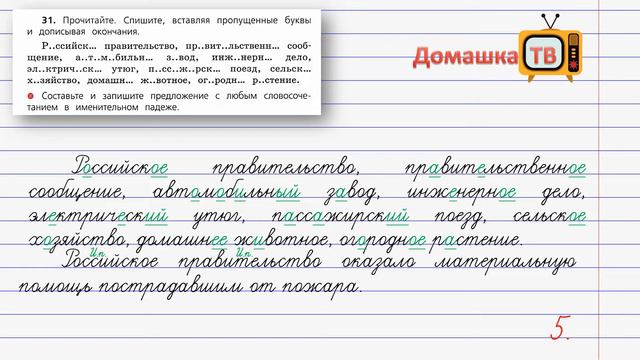 31. Прочитайте. Спишите, вставляя пропущенные буквы
и дописывая окончания.
Р..ссийск... правительство, пр..вит..льственн... сооб-
щение, а..т..м..бильн... з..вод, инж..нерн... дело,
эл..ктрич..ск... утюг, п..сс..ж..рск... поезд, сельск...
х..зяйство, домашн... ж..вотное, ог..родн... р..стение.
Составьте и запишите предложение с любым словосоче-
танием в именительном падеже.
Домашка ТВ
Российское правительство, правительственное
сообщение, автомобильный завод, инженерное дело,
электрический утюг, пассажирский поезд, сельское
хозяйство, домашнее животное, огородное растение.
И.п. И.п.
Российское правительство оказало материальную
помощь пострадавшим от пожара.
5.